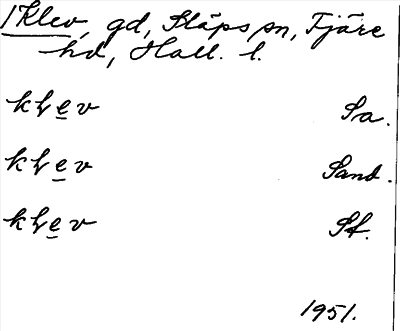 1 Klev, gd, Släps sn, Fjäre
hd, Hall. l.
klev Sa.
klev Sand.
klev St.
1951.